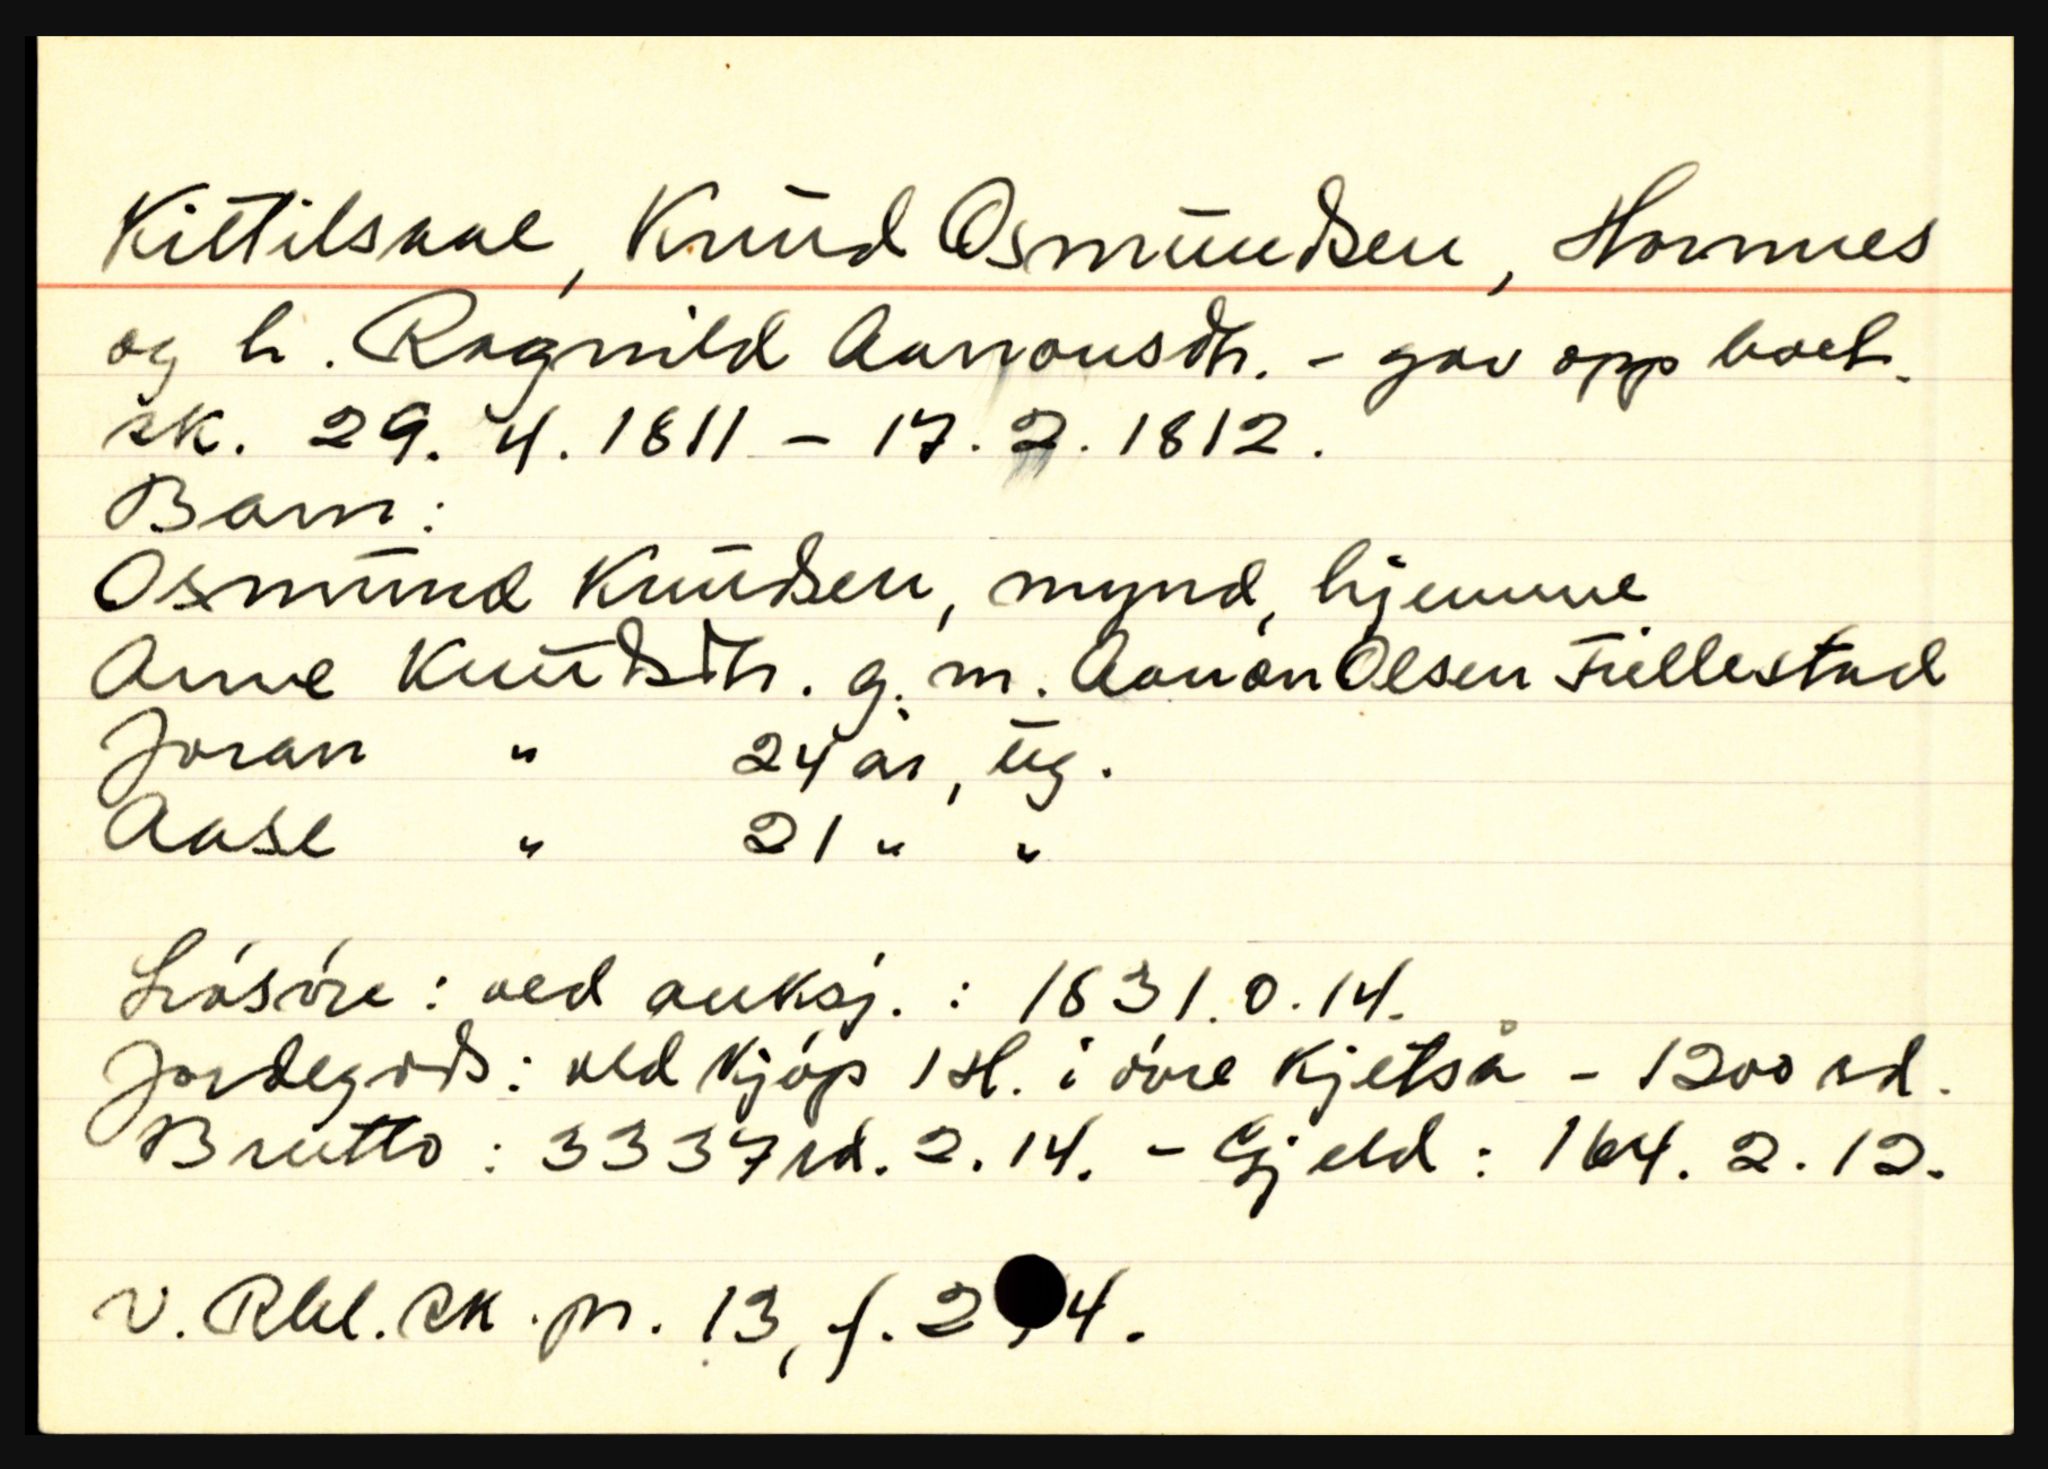 Kittilsaae, Knud Osmundsen, Hornnes
og h. Ragnild Aanonsdtr. - gav opp boet.
sk. 29. 4. 1811 - 17. 2. 1812.
Barn:
Osmund Knudsen, mynd, hjemme
Anne Knudsdtr. g. m. Aanon Olsen Fiellestad
Joran " 24 år, ug.
Aase " 21 " "
Lösöre: ved auksj. : 1831.0.14.
Jordegods: ved kjöp 1 H. i övre Kjetså - 1200 rd.
Brutto : 3337 rd. 2. 14. - Gjeld : 164. 2. 12.
V. Rbl. sk. pr. 13, f.